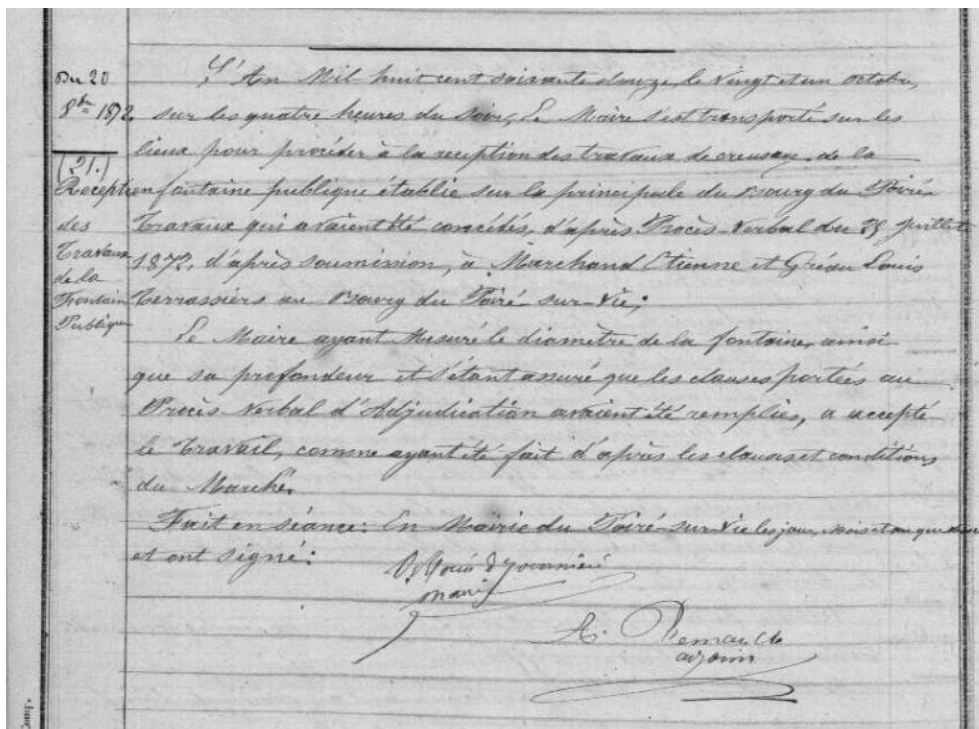 Du 20
8bre 1872.
(21.)
Reception
des
Travaux
de la
Fontaine
Publique
L'An Mil huit cent soixante douze, le vingt et un octobre,
sur les quatre heures du soir, Le Maire s'est transporté sur les
lieux pour procéder à la reception des travaux de creusage de la
fontaine publique établie sur la principale du Bourg du Poiré
Travaux qui avaient été concédés, d'après Procès-Verbal du juillet
1872, d'après soumission, à Marchand Etienne et Gréau Louis
Terrassiers au Bourg du Poiré-sur-Vie;
Le Maire ayant Mesuré le diamètre de la fontaine, ainsi
que sa profondeur et s'étant assuré que les clauses portées au
Procès-Verbal d'Adjudication avaient été remplies, a accepté
le Travail, comme ayant été fait d'après les clauses et conditions
du Marché.
Fait en séance: En Mairie du Poiré-sur-Vie les jour, mois et an que
et ont signé:
maire
A.
adjoint